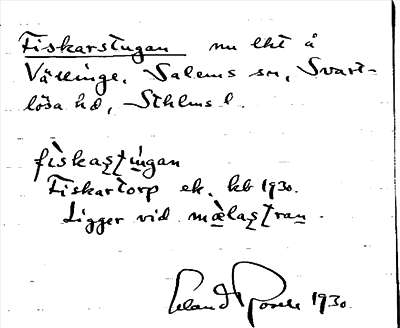 Fiskarstugan nu lht å
Vällinge, Salems sn, Svart-
lösa hd, Sthlms l.
fìskaʂʈúgan
Fiskartorp ek. kb 1930.
Ligger vid mæ̀laʂʈran.
Erland Rosell 1930.